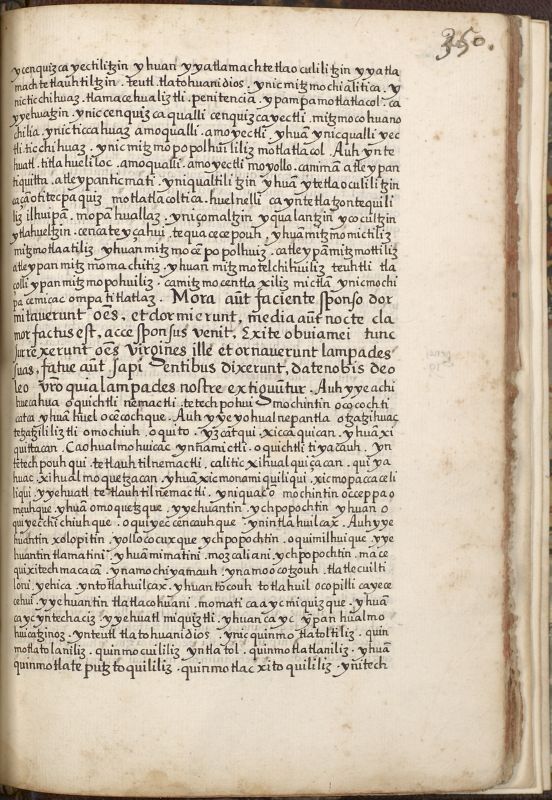 350.
ycenquizca yectilitzin yhuan yyatlamachtetlaoculilitzin yyatla
machtetlauhtiltzin . teutl . tlatohuani dios . ynic mitzmochialitica . y
nictic chihuaz . tlamacehualiztli . penitencia . ypampa motlatlacol . ca
yyehuatzin . ynic cenquizca qualli cenquizca yectli . mitzmocohuano
chilia . ynic ticcahuaz amoqualli . amoyectli . yhuā ynicqualli yec
tli . tic chihuaz . ynic mitzmopopolhuililiz motlatlacol . Auh yn te
huatl . titlahueliloc . amoqualli . amoyectli moyollo . canimā atle ypan
tiquitta . atle ypan ticmati . yniqualtilitzin yhuā ytetlaoculilitzin
caçā otitecpaquiz motlatlacoltica . huel nelli ca yntetlatzontequili
liz ilhuipā . mopā huallaz . yniçomaltzin yqualantzin yocoltzin
ytlahueltzin . cencate yçahui . tequacecepouh , yhuā mitzmomictiliz
mitzmotlaatiliz yhuan mitzmocēpopolhuiz . catle ypā mitzmottiliz
atle ypan mitzmomachitiz . yhuan mitzmotelchihuiliz teuhtli tla
çolli ypan mitzmopohuiliz . camitzmocentlaxiliz mictlā ynicmochi
pa cemicac ompa titlatlaz . Mora aūt faciente sponso dor
mitauerunt oēs , et dormierunt , media aūt nocte cla
mor factus est , acce sponsus venit , Exite obuiamei tunc
surrexerunt oēs virgines ille et ornauerunt lampades
suas , fatue aūt sapientibus dixerunt , datenobis deo
leo vro quia lampades nostre extiguūtur . Auh yyeachi
huecahua oquichtli nemactli . tetech pohui mochintin ococochti
catca yhuā huel ocēcochque . Auh yyeyohualnepantla otzatzihuac
tetzatzililiztli omochiuh . oquito . yzcatqui . xicçaquican . yhuā xi
quittacan . Caohualmohuicac ynnamictli . oquichtli tiyacauh . yn
tetech pouhqui tetlauhtilnemactli . calitic xihualquiçacan . quiya
huac . xihualmoquetzacan . yhuā xicmonamiquiliqui . xicmopaccaceli
liqui . yyehuatl tetlauhtilnemactli . yniquac o mochintin occeppa o
meuhque . yhuā omoquetzque . yyehuantin . ychpopochtin . yhuan o
quiyecchichiuhque . oquiyeccencauhque . ynintlahuilcax . Auh yye
huantin xolopitin . yollococuxque ychpopochtin . oquimilhuique . yye
huantin tlamatini . yhuā mimatini . mozcaliani . ychpopochtin . mace
quixitechmacacā . ynamochiyamauh . ynamoocotzouh . tlatlecuilti
loni . yehica . yntotlahuilcax . yhuan tōcouh totlahuil ocopilli cayece
cehui . yyehuantin tlatlacohuani . momati caaycmiquizque . yhuā
caycyntechaciz . yyehuatl miquiztli . yhuan cayc . ypan hualmo
huicatzinoz . ynteutl tlatohuani dios . ynic quinmotlatoltiliz . quin
motlatolaniliz . quinmocuililiz yntlatol . quinmotlatlaniliz . yhuā
quinmotlateputztoquililiz . quinmotlacxitoquililiz . ynitech